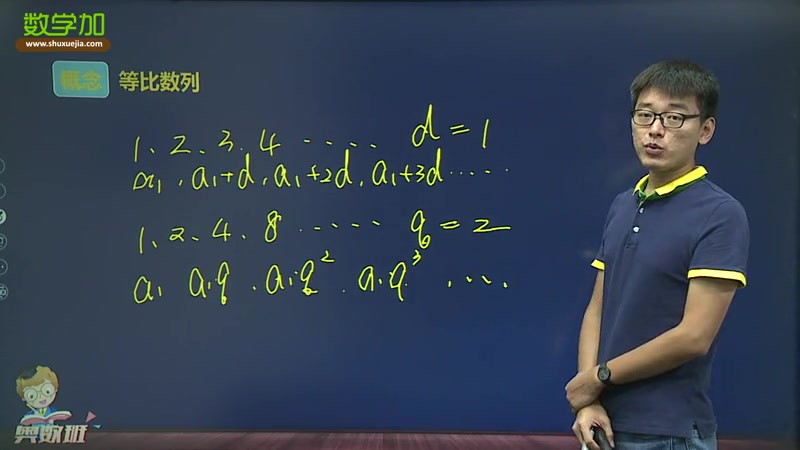 数学加
www.shuxuejia.com
概念 等比数列
1、2、3、4 ····· d=1
a₁，a₁+d，a₁+2d，a₁+3d ·····
1、2、4、8 ····· q=2
a₁ a₁q，a₁·q²，a₁·q³，·····
奥数班